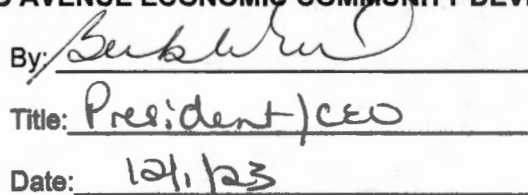 AVENUE ECONOMIC COMMUNITY
By:
Title: President/CEO
Date: 12/1/23